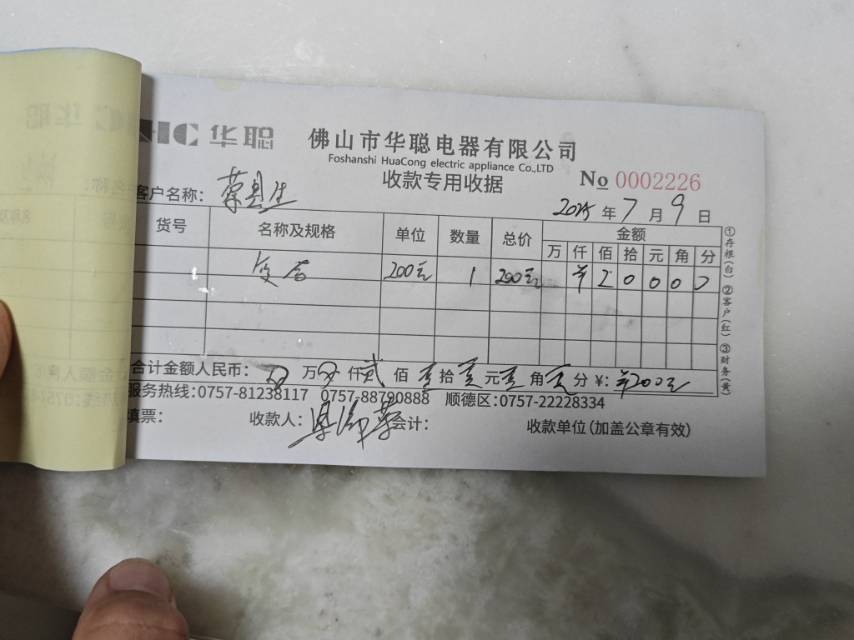 HC 华聪
佛山市华聪电器有限公司
Foshanshi HuaCong electric appliance Co.,LTD
收款专用收据
No 0002226
客户名称：
2025 年 7 月 9 日
货号 名称及规格 单位 数量 总价 金额
万 仟 佰 拾 元 角 分
200元 1 200元 ¥ 2 0 0 0 0
合计金额人民币： 万 仟 贰 佰 拾 元 角 分 ¥: ¥200元
服务热线:0757-81238117 0757-88790888 顺德区:0757-22228334
填票： 收款人： 会计： 收款单位(加盖公章有效)
①存根(白) ②客户(红) ③财务(黄)